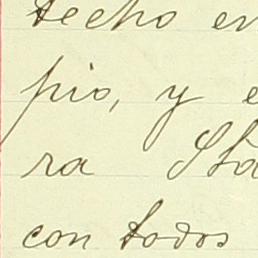 techo en
pio, y e
ra Sta
con todos